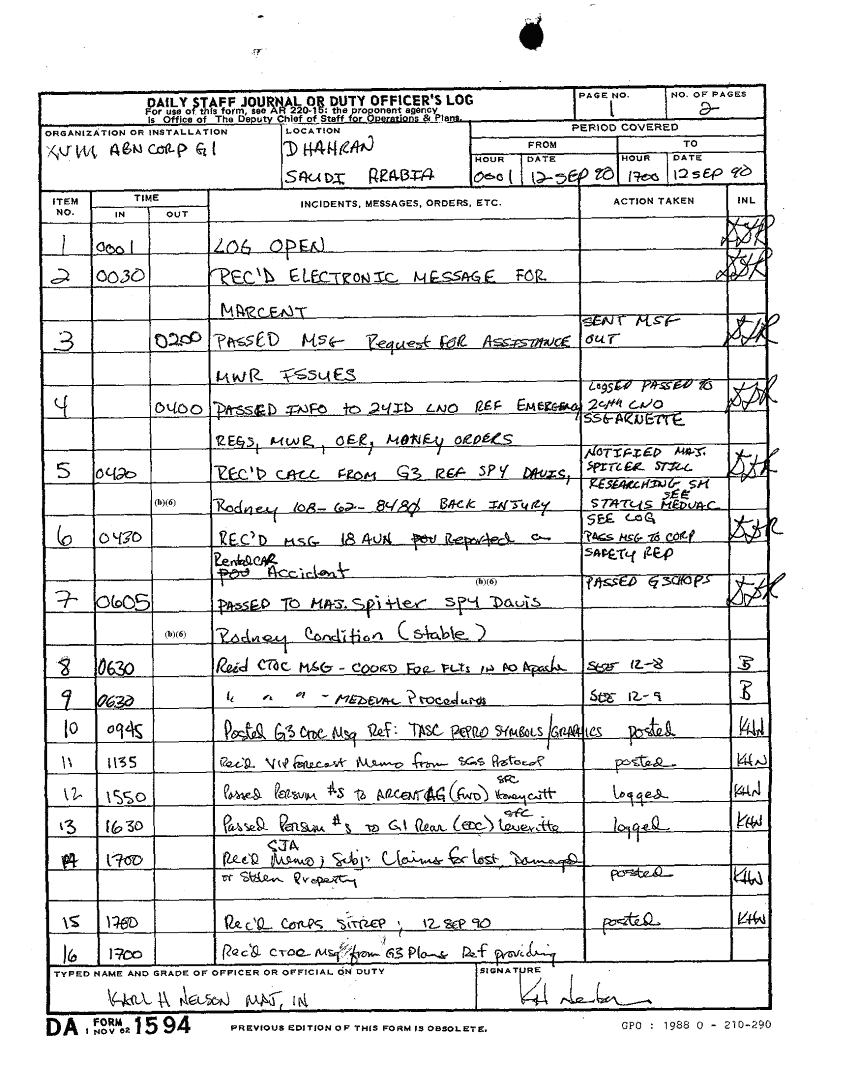 DAILY STAFF JOURNAL OR DUTY OFFICER'S LOG
For use of this form, see AR 220-15; the proponent agency
is Office of The Deputy Chief of Staff for Operations & Plans.
PAGE NO.
1
NO. OF PAGES
2
ORGANIZATION OR INSTALLATION
XVIII ABN CORP G1
LOCATION
DHAHRAN
SAUDI ARABIA
PERIOD COVERED
FROM
TO
HOUR
DATE
HOUR
DATE
0001
12 SEP 90
1700
12 SEP 90
ITEM NO.
TIME
IN
OUT
INCIDENTS, MESSAGES, ORDERS, ETC.
ACTION TAKEN
INL
1 0001 LOG OPEN
2 0030 REC'D ELECTRONIC MESSAGE FOR
MARCENT
3 0200 PASSED MSG Request FOR ASSISTANCE
MWR ISSUES
SENT MSG
OUT
4 0400 PASSED INFO TO 24ID LNO REF EMERGENCY
REGS, MWR, OER, MONEY ORDERS
LOGGED PASSED TO
24th LNO
SSG ARNETTE
5 0420 REC'D CALL FROM G3 REF SPY DAVIS,
(b)(6) Rodney BACK INJURY
NOTIFIED MAJ.
SPITLER STILL
RESEARCHING SM
SEE
STATUS MEDUAC
6 0430 REC'D MSG 18 AVN POV Reported a
Rental CAR
POV Accident
SEE LOG
PASS MSG TO CORP
SAFETY REP
7 0605 PASSED TO MAJ. Spitler SPY Davis (b)(6)
(b)(6) Rodney Condition (stable)
PASSED G3CHOPS
8 0630 Recd CTOC MSG - COORD FOR FLTS IN AO Apache 12-8 B
9 0630 " " " - MEDEVAC Procedures 12-9 B
10 0945 Posted G3 CTOC Msg Ref: TASC REPRO SYMBOLS/GRAPHICS posted KHN
11 1135 Rec'd VIP Forecast Memo from SGS Protocol posted KHN
SFC
12 1550 Passed Persum #s to ARCENT AG (FWD) Honeycutt logged KHN
SFC
13 1630 Passed Persum #s to G1 Rear (EOC) Leveritte logged KHN
SJA
14 1700 Rec'd Memo; Subj: Claims for lost, Damaged
or Stolen Property posted KHN
15 1700 Rec'd CORPS SITREP; 12 SEP 90 posted KHN
16 1700 Rec'd CTOC Msg from G3 Plans Ref providing
TYPED NAME AND GRADE OF OFFICER OR OFFICIAL ON DUTY
KARL H NELSON MAJ, IN
SIGNATURE
KH Nelson
DA FORM 1594
1 NOV 62
PREVIOUS EDITION OF THIS FORM IS OBSOLETE.
GPO : 1988 O - 210-290